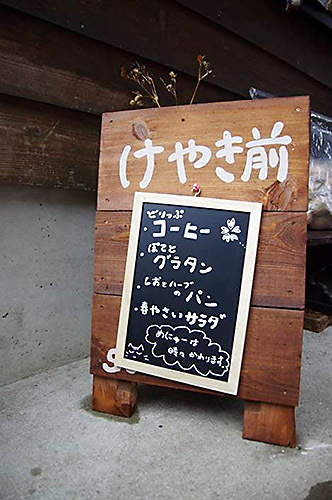 けやき前
どりっぷ
・コーヒー
ぽてと
・グラタン
しおとハーブ
・のパン
・春やさいサラダ
めにゅーは
時々かわります。